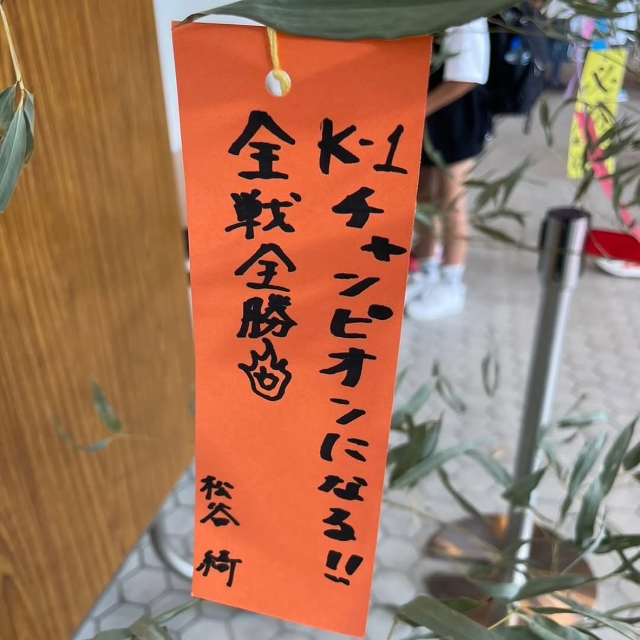 K-1チャンピオンになる!!
全戦全勝
松谷 綺